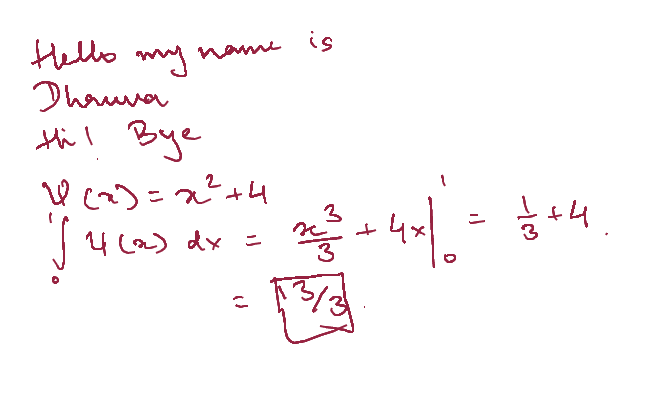 Hello my name is
Dhanwa
Hi! Bye
Ψ(x) = x² + 4
∫₀¹ Ψ(x) dx = x³/3 + 4x |₀¹ = 1/3 + 4.
= 13/3.